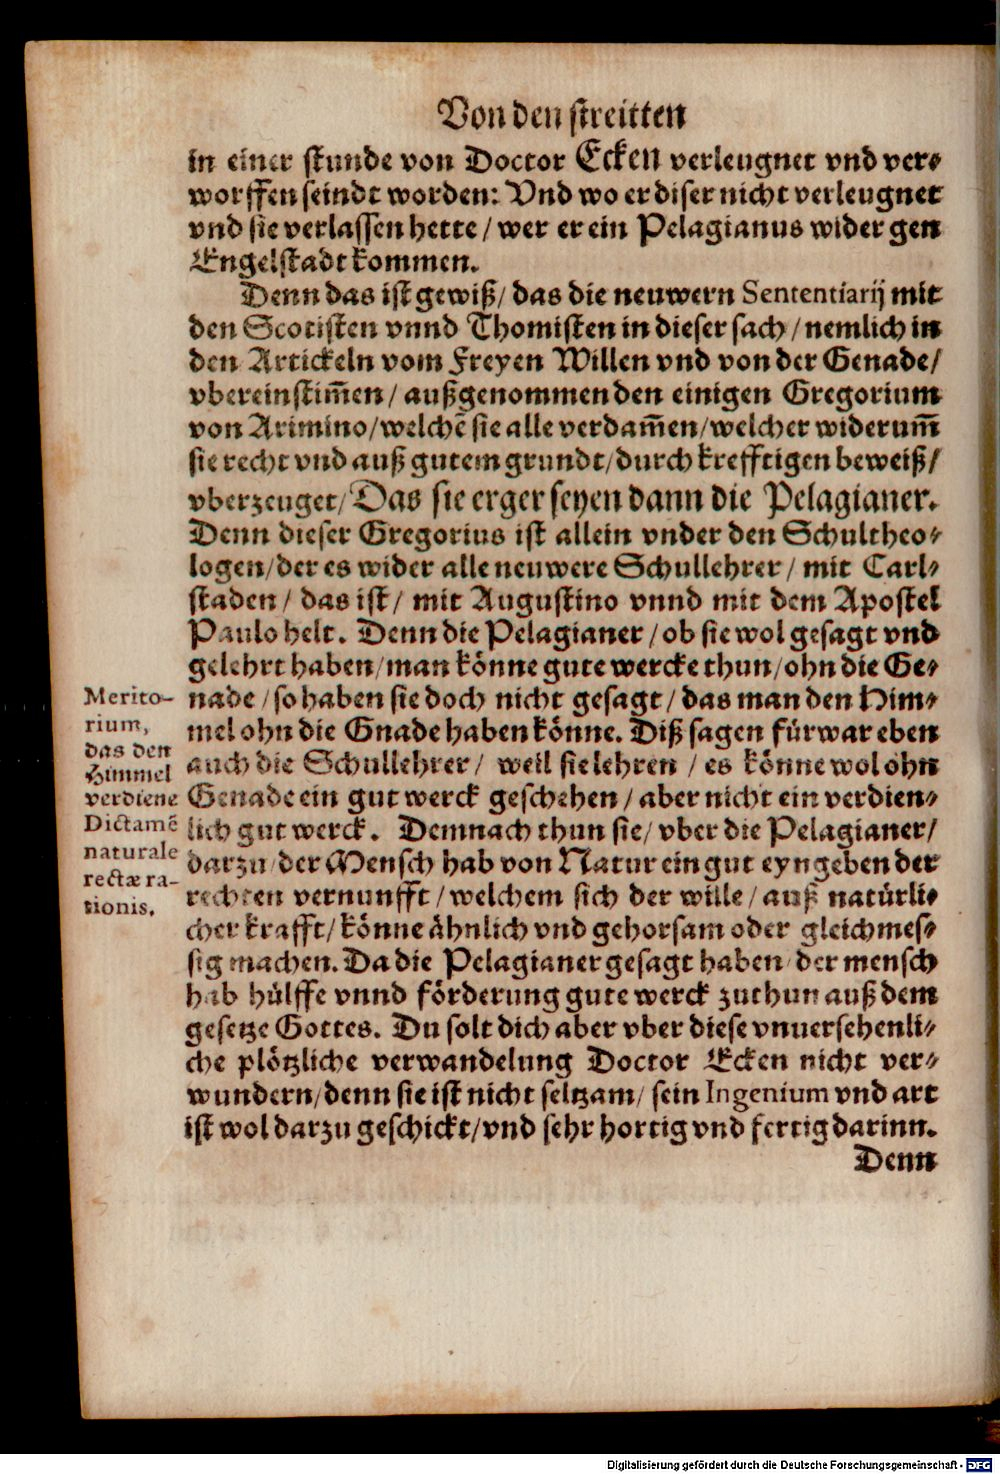 Von den streitten
in einer stunde von Doctor Ecken verleugnet vnd ver⸗
worffen seindt worden: Vnd wo er diser nicht verleugnet
vnd sie verlassen hette / wer er ein Pelagianus wider gen
Engelstadt kommen.
Denn das ist gewiß / das die neuwern Sententiarij mit
den Scotisten vnnd Thomisten in dieser sach / nemlich in
den Artickeln vom Freyen Willen vnd von der Genade /
vbereinstim̃en / außgenommen den einigen Gregorium
von Arimino / welchẽ sie alle verdam̃en / welcher widerum̃
sie recht vnd auß gutem grundt / durch krefftigen beweiß /
vberzeuget / Das sie erger seyen dann die Pelagianer.
Denn dieser Gregorius ist allein vnder den Schultheo⸗
logen / der es wider alle neuwere Schullehrer / mit Carl⸗
staden / das ist / mit Augustino vnnd mit dem Apostel
Paulo helt. Denn die Pelagianer / ob sie wol gesagt vnd
gelehrt haben / man könne gute wercke thun / ohn die Ge⸗
nade / so haben sie doch nicht gesagt / das man den Him⸗
mel ohn die Gnade haben könne. Diß sagen fürwar eben
auch die Schullehrer / weil sie lehren / es könne wol ohn
Genade ein gut werck geschehen / aber nicht ein verdien⸗
lich gut werck. Demnach thun sie / vber die Pelagianer /
darzu / der Mensch hab von Natur ein gut eyngeben der
rechten vernunfft / welchem sich der wille / auß natürli⸗
cher krafft / könne ähnlich vnd gehorsam oder gleichmes⸗
sig machen. Da die Pelagianer gesagt haben / der mensch
hab hülffe vnnd förderung gute werck zuthun auß dem
gesetze Gottes. Du solt dich aber vber diese vnuersehenli⸗
che plötzliche verwandelung Doctor Ecken nicht ver⸗
wundern / denn sie ist nicht seltzam / sein Ingenium vnd art
ist wol darzu geschickt / vnd sehr hortig vnd fertig darinn.
Denn
Merito-
rium,
das den
Himmel
verdiene
Dictamẽ
naturale
rectæ ra-
tionis.
Digitalisierung gefördert durch die Deutsche Forschungsgemeinschaft - DFG